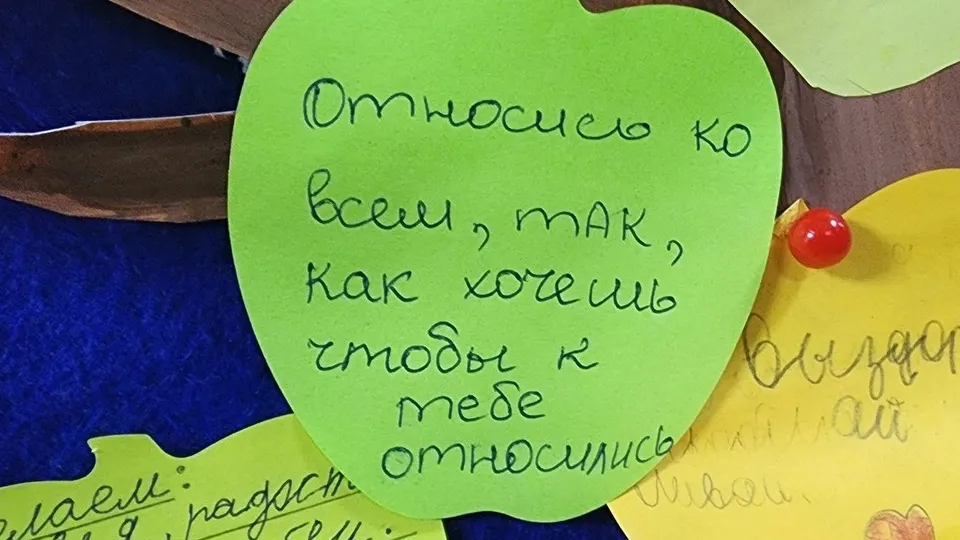 Относись ко
всем, так,
как хочешь
чтобы к
тебе
относились
лаем:
радост